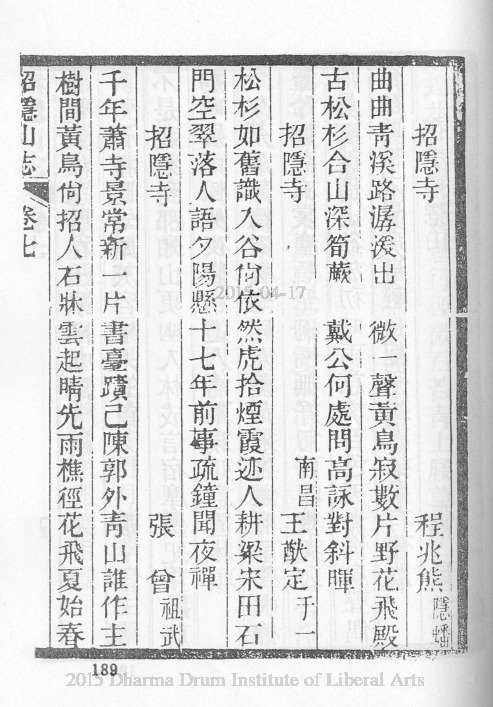 招隱寺 程兆熊 隱蟠
曲曲靑溪路潺湲出 微一聲黃鳥寂數片野花飛殿
古松杉合山深筍蕨 戴公何處問高詠對斜暉
招隱寺 南昌 王猷定 于一
松杉如舊識入谷尙依然虎拾煙霞迹人耕梁宋田石
門空翠落人語夕陽懸十七年前事疏鐘聞夜禪
招隱寺 張 曾 祖武
千年蕭寺景常新一片書臺蹟己陳郭外靑山誰作主
樹間黃鳥尙招人石牀雲起晴先雨樵徑花飛夏始春
招隱山志 卷七
189
2015-04-17
2015 Dharma Drum Institute of Liberal Arts